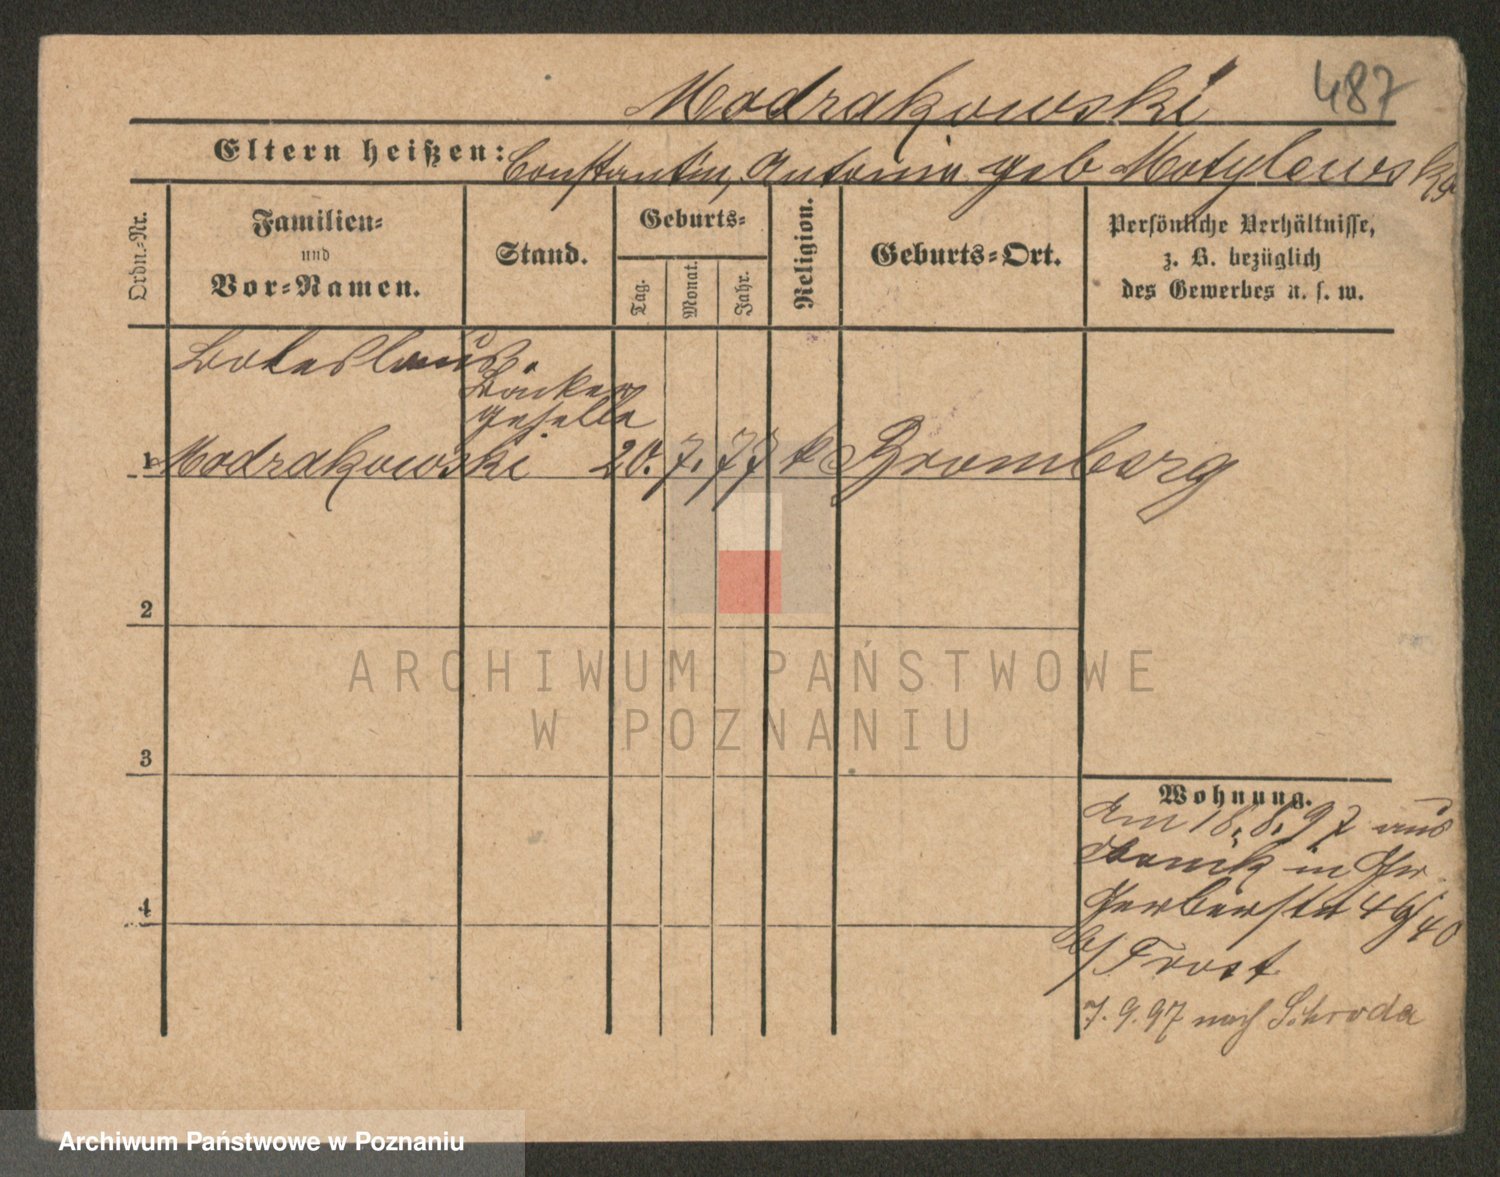 Modrakowski 487
Eltern heißen: Constantin, Antonie geb Motylewska
Ordn.-Nr.
Familien-
und
Vor-Namen.
Stand.
Geburts-
Tag.
Monat.
Jahr.
Religion.
Geburts-Ort.
Persönliche Verhältnisse,
z. B. bezüglich
des Gewerbes u. s. w.
Boleslaus
Bäcker
geselle
1 Modrakowski 20. 7. 77 k Bromberg
2
ARCHIWUM PAŃSTWOWE
W POZNANIU
3
Wohnung.
Am 18.8.97 aus
in
Gerberstr 40
b/ Frost
7.9.97 nach Schroda
4
Archiwum Państwowe w Poznaniu